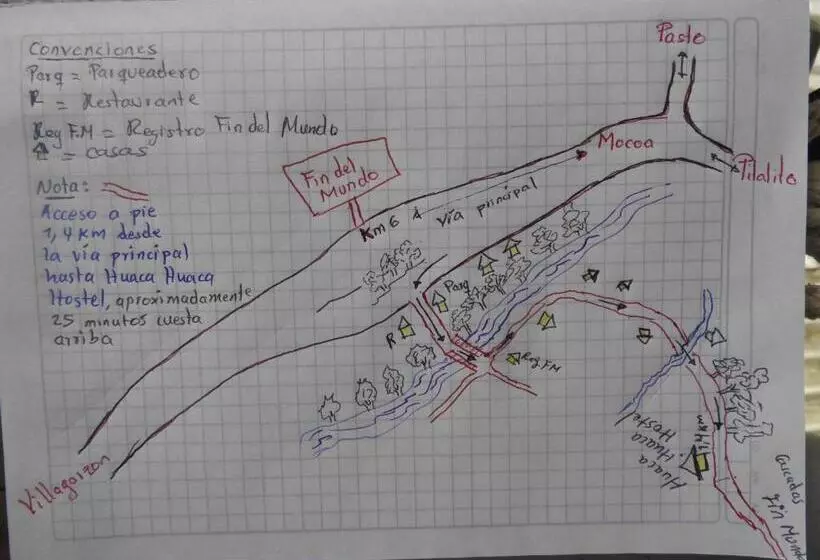 Convenciones
Parq = Parqueadero
R = Restaurante
Reg F.M = Registro Fin del Mundo
= casas
Nota:
Acceso a pie
1,4 Km desde
la vía principal
hasta Huaca Huaca
Hostel, aproximadamente
25 minutos cuesta
arriba
Pasto
Mocoa
Pitalito
Fin del
Mundo
Km 6
vía principal
Parq
R
Reg FM
1.4 km
Huaca
Huaca
Hostel
Fin Mundo
Villagarzon